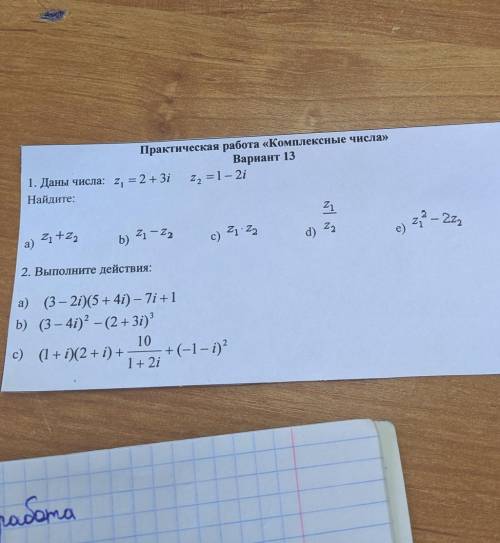 Практическая работа «Комплексные числа»
Вариант 13
1. Даны числа: z₁ = 2 + 3i z₂ = 1 – 2i
Найдите:
a) z₁ + z₂ b) z₁ – z₂ c) z₁ · z₂ d) z₁/z₂ e) z₁² – 2z₂
2. Выполните действия:
a) (3 – 2i)(5 + 4i) – 7i + 1
b) (3 – 4i)² – (2 + 3i)³
c) (1 + i)(2 + i) + 10/(1 + 2i) + (–1 – i)²
работа